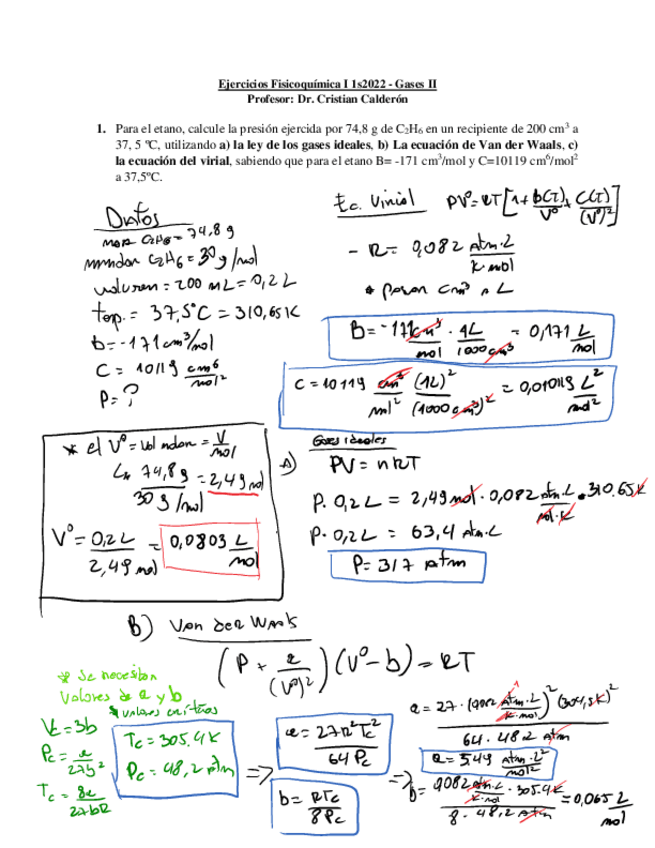 Ejercicios Fisicoquímica I 1s2022 - Gases II
Profesor: Dr. Cristian Calderón
1. Para el etano, calcule la presión ejercida por 74,8 g de C₂H₆ en un recipiente de 200 cm³ a
37, 5 ºC, utilizando a) la ley de los gases ideales, b) La ecuación de Van der Waals, c)
la ecuación del virial, sabiendo que para el etano B= -171 cm³/mol y C=10119 cm⁶/mol²
a 37,5ºC.
Datos
masa C₂H₆ = 74,8 g
C₂H₆ = 30 g/mol
volumen = 200 mL = 0,2 L
temp. = 37,5°C = 310,65K
b = -171 cm³/mol
C = 10119 cm⁶/mol²
P = ?
Ec. Virial PV° = RT[1 + b(T)/V° + C(T)/(V°)²]
- R = 0,082 Atm·L/K·mol
* pasar cm³ a L
B = -171 cm³/mol · 1L/1000cm³ = 0,171 L/mol
C = 10119 cm³/mol² (1L)²/(1000 cm³)² = 0,010119 L²/mol²
* el V° = vol molar = V/mol
↳ 74,8 g / 30 g/mol = 2,49 mol
V° = 0,2 L / 2,49 mol = 0,0803 L/mol
Gases ideales
A) PV = nRT
P · 0,2 L = 2,49 mol · 0,082 Atm·L/mol·K · 310.65K
P · 0,2 L = 63,4 Atm·L
P = 317 Atm
B) Van der Waals
(P + a/(V°)²)(V° - b) = RT
* Se necesitan
valores de a y b
* valores críticos
Vc = 3b
Pc = a/27b²
Tc = 8a/27bR
Tc = 305.4K
Pc = 48,2 Atm
=>
a = 27R²Tc²/64Pc
b = RTc/8Pc
=>
a = 27 · (0,082 Atm·L/K·mol)² (304,5K)² / 64 · 48.2 Atm
a = 5.49 Atm·L²/mol²
b = 0,082 Atm·L/K·mol · 305.4K / 8 · 48,2 Atm = 0,065 L/mol